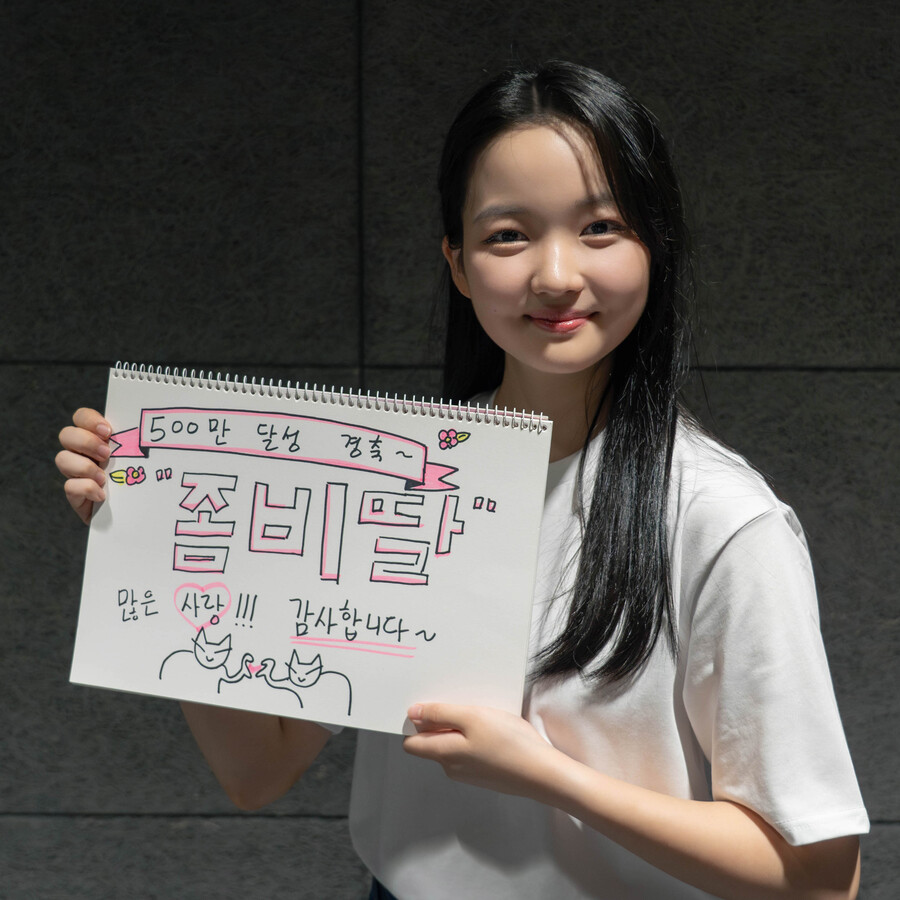 500만 달성 경축~
"좀비딸"
많은 사랑!!! 감사합니다~